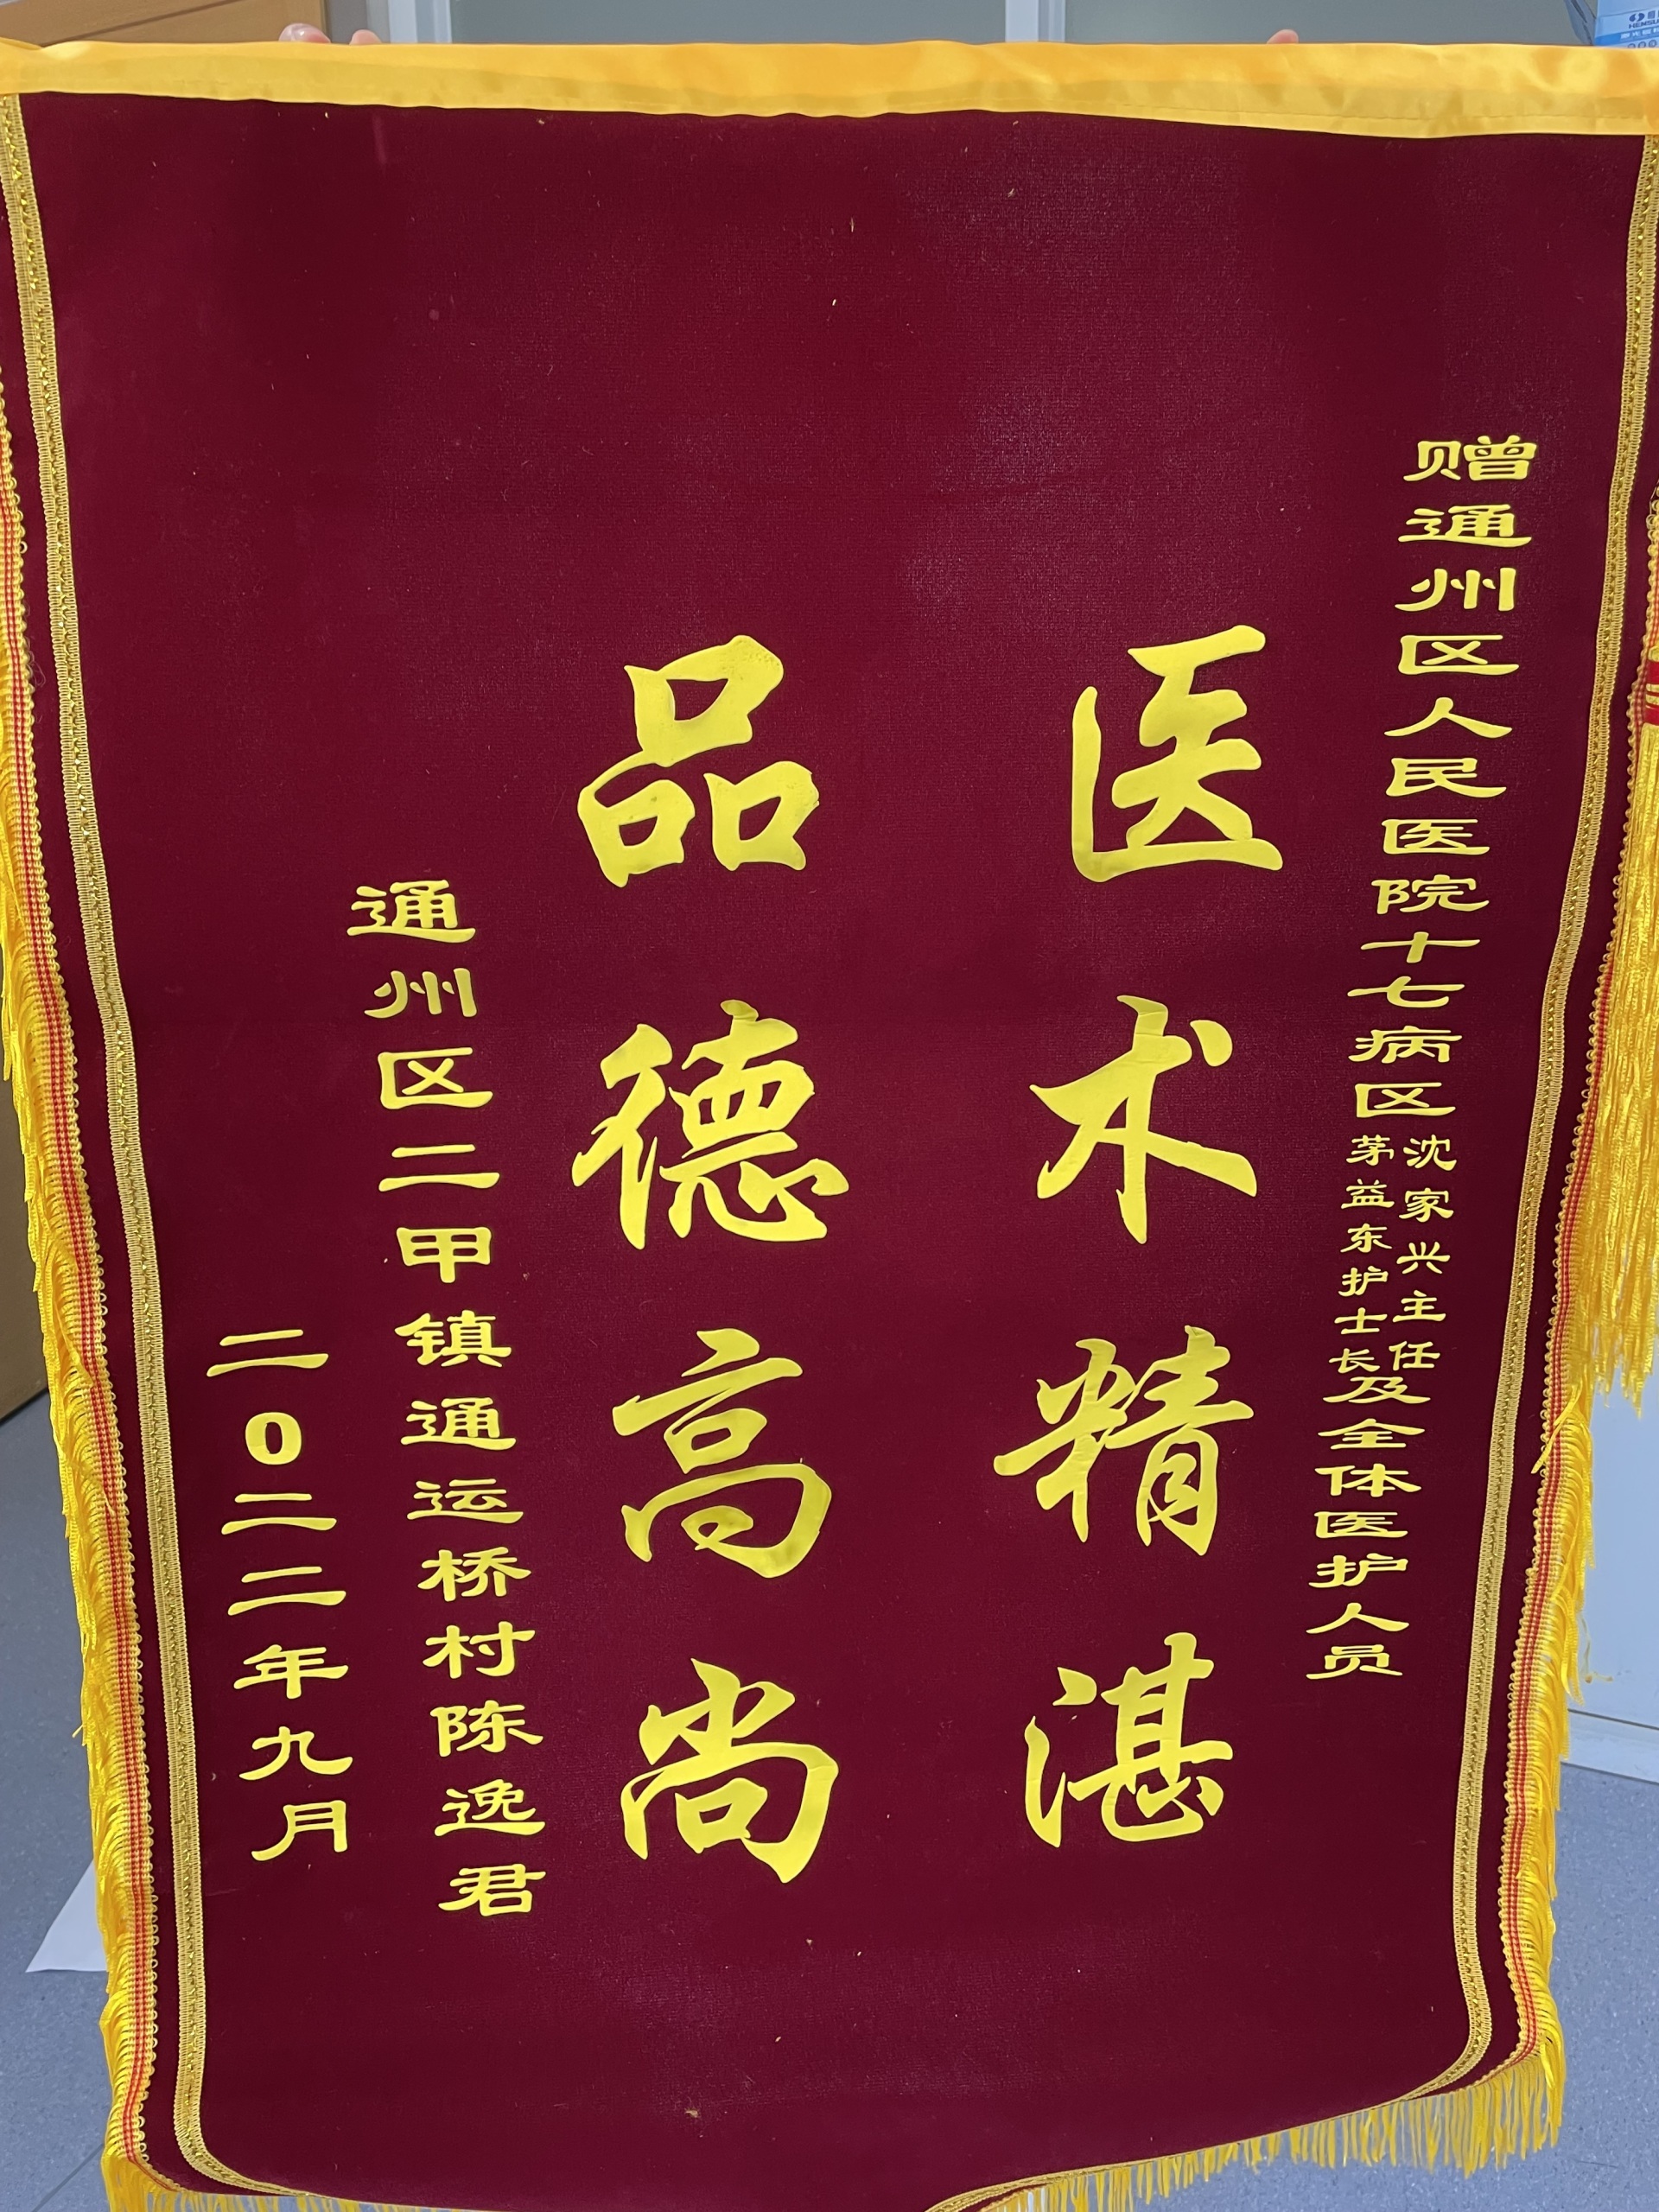 赠通州区人民医院十七病区
沈家兴主任
茅益东护士长
及全体医护人员
医术精湛
品德高尚
通州区二甲镇通运桥村陈逸君
二0二二年九月